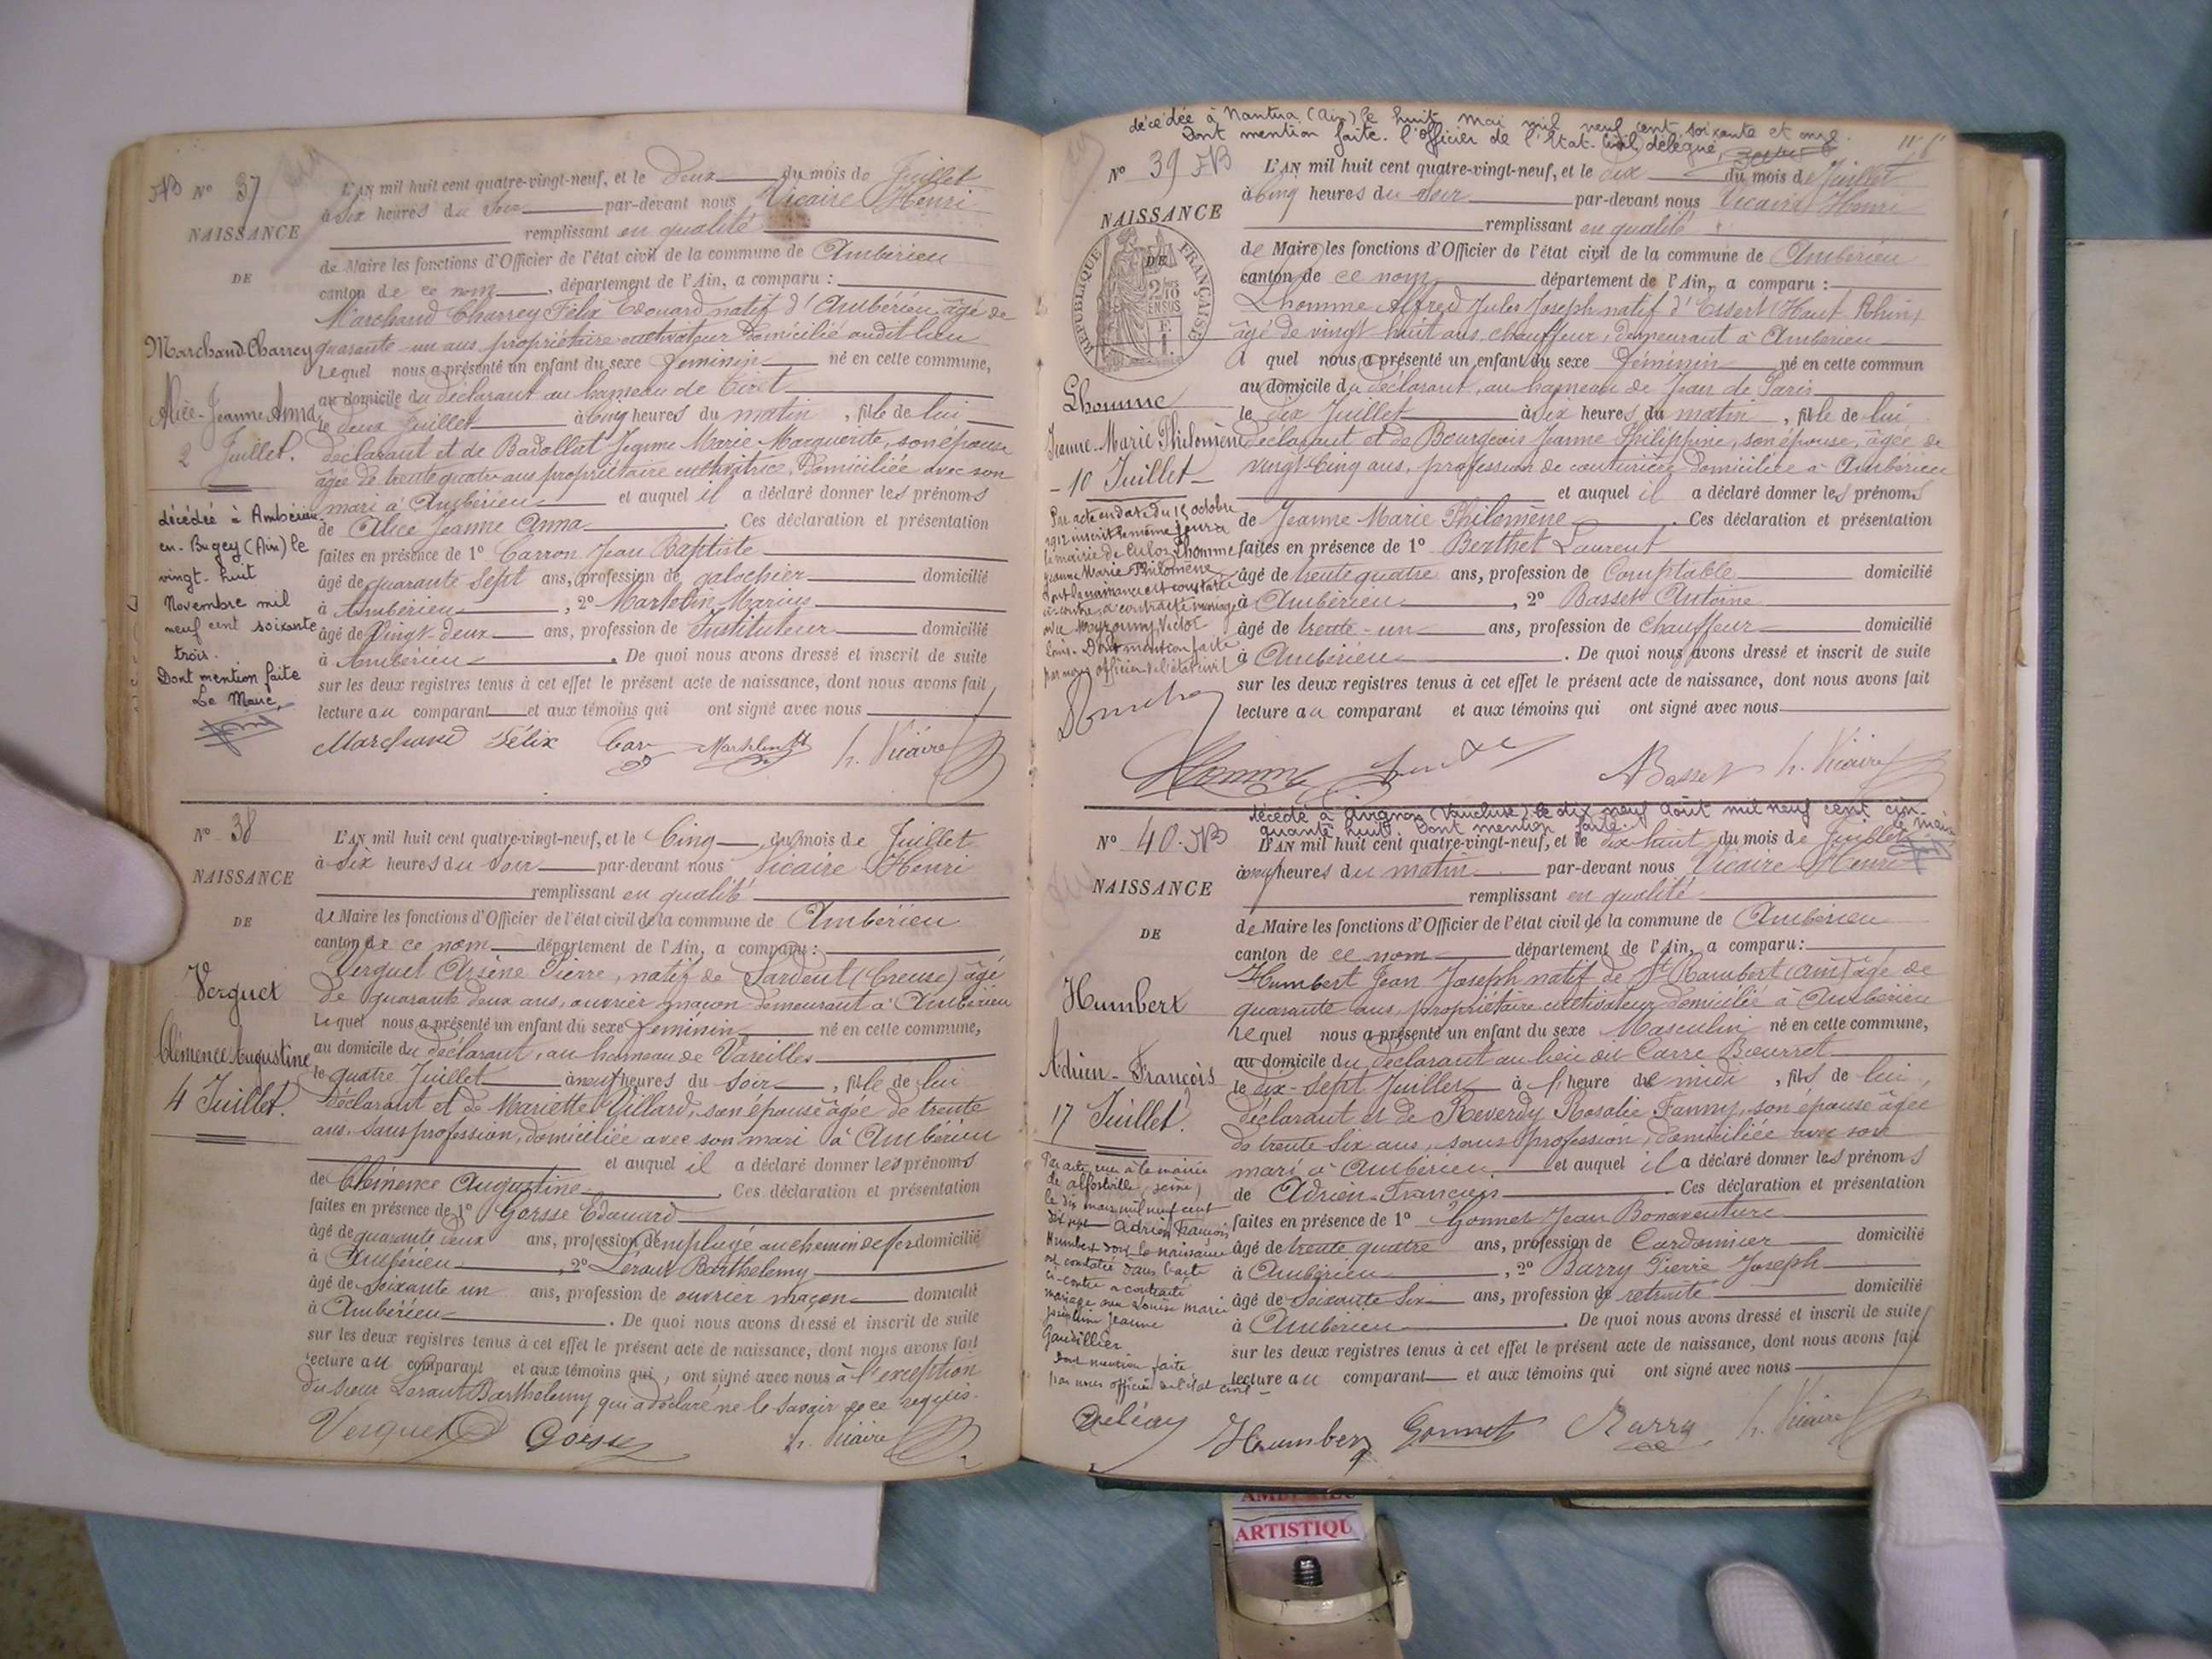 N° 37
NAISSANCE
DE
Marchand Charrey
Alice-Jeanne Anna
2 Juillet.
décédée à Ambérieu-
en-Bugey (Ain) le
vingt-huit
Novembre mil
neuf cent soixante
trois.
Dont mention faite
Le Maire,
L'AN mil huit cent quatre-vingt-neuf, et le Deux du mois de Juillet
à six heures du soir par-devant nous Vicaire Henri
remplissant en qualité
de Maire les fonctions d'Officier de l'état civil de la commune de Ambérieu
canton de ce nom, département de l'Ain, a comparu :
Marchand Charrey Félix Edouard natif d'Ambérieu, âgé de
quarante-un ans, propriétaire cultivateur domicilié audit lieu
Lequel nous a présenté un enfant du sexe féminin né en cette commune,
au domicile du déclarant au hameau de Tiret
le deux Juillet à cinq heures du matin, fille de lui
déclarant et de Badollat Jeanne Marie Marguerite, son épouse
âgée de trente quatre ans propriétaire cultivatrice, domiciliée avec son
mari à Ambérieu et auquel il a déclaré donner les prénoms
de Alice Jeanne Anna. Ces déclaration et présentation
faites en présence de 1° Carron Jean Baptiste
âgé de quarante sept ans, profession de galochier domicilié
à Ambérieu, 2° Martelin Marius
âgé de Vingt-deux ans, profession de Instituteur domicilié
à Ambérieu. De quoi nous avons dressé et inscrit de suite
sur les deux registres tenus à cet effet le présent acte de naissance, dont nous avons fait
lecture au comparant et aux témoins qui ont signé avec nous
Marchand Félix Car Martelin M h. Vicaire
N° 38
NAISSANCE
DE
Verguet
Clémence Augustine
4 Juillet.
L'AN mil huit cent quatre-vingt-neuf, et le Cinq du mois de Juillet
à six heures du soir par-devant nous Vicaire Henri
remplissant en qualité
de Maire les fonctions d'Officier de l'état civil de la commune de Ambérieu
canton de ce nom département de l'Ain, a comparu :
Verguet Arsène Pierre, natif de Sardent (Creuse) âgé
de quarante deux ans, ouvrier maçon demeurant à Ambérieu
Lequel nous a présenté un enfant du sexe féminin né en cette commune,
au domicile du déclarant, au hameau de Vareilles
le quatre Juillet à neuf heures du soir, fille de lui
déclarant et de Mariette Villard, son épouse âgée de trente
ans, sans profession, domiciliée avec son mari à Ambérieu
et auquel il a déclaré donner les prénoms
de Clémence Augustine. Ces déclaration et présentation
faites en présence de 1° Gorsse Edouard
âgé de quarante deux ans, profession de employé au chemin de fer domicilié
à Ambérieu, 2° Léraut Barthelemy
âgé de soixante un ans, profession de ouvrier maçon domicilié
à Ambérieu. De quoi nous avons dressé et inscrit de suite
sur les deux registres tenus à cet effet le présent acte de naissance, dont nous avons fait
lecture au comparant et aux témoins qui, ont signé avec nous à l'exception
du sieur Léraut Barthelemy qui a déclaré ne le savoir de ce requis.
Verguet Gorsse h. Vicaire
décédée à Nantua (Ain) le huit mai mil neuf cent soixante et onze.
Dont mention faite. l'Officier de l'Etat-Civil délégué,
N° 39
NAISSANCE
RÉPUBLIQUE FRANÇAISE
DE
Lhomme
Jeanne-Marie Philomène
10 Juillet
Par acte en date du 15 octobre
1912 inscrit le même jour à
la mairie de Culoz Lhomme
Jeanne Marie Philomène
dont la naissance est constatée
ci-contre, a contracté mariage
avec Victor
Louis. Dont mention faite
par nous officier de l'état civil
L'AN mil huit cent quatre-vingt-neuf, et le dix du mois de Juillet
à cinq heures du soir par-devant nous Vicaire Henri
remplissant en qualité
de Maire les fonctions d'Officier de l'état civil de la commune de Ambérieu
canton de ce nom département de l'Ain, a comparu :
Lhomme Alfred Jules Joseph natif d'Essert (Haut Rhin)
âgé de vingt huit ans, chauffeur, demeurant à Ambérieu
quel nous a présenté un enfant du sexe féminin né en cette commun
au domicile du déclarant, au hameau de Jean de Paris
le dix Juillet à six heures du matin, fille de lui
déclarant et de Bourgeois Jeanne Philippine, son épouse, âgée de
vingt-cinq ans, profession de couturière domiciliée à Ambérieu
et auquel il a déclaré donner les prénoms
de Jeanne Marie Philomène. Ces déclaration et présentation
faites en présence de 1° Berthet Laurent
âgé de trente quatre ans, profession de Comptable domicilié
à Ambérieu, 2° Basset Antoine
âgé de trente-un ans, profession de chauffeur domicilié
à Ambérieu. De quoi nous avons dressé et inscrit de suite
sur les deux registres tenus à cet effet le présent acte de naissance, dont nous avons fait
lecture au comparant et aux témoins qui ont signé avec nous
Basset h. Vicaire
décédé à Avignon (Vaucluse) le dix neuf Août mil neuf cent cin-
quante huit. Dont mention faite. le maire
N° 40.
NAISSANCE
DE
Humbert
Adrien-François
17 Juillet.
Par acte reçu à la mairie
de Alfortville (Seine)
le dix mars mil neuf cent
dix sept Adrien François
Humbert dont la naissance
est constatée dans l'acte
ci-contre a contracté
mariage avec Louise Marie
Joséphine Jeanne
Gaudillier
Dont mention faite
par nous officier de l'état civil
L'AN mil huit cent quatre-vingt-neuf, et le dix-huit du mois de Juillet
à onze heures du matin par-devant nous Vicaire Henri
remplissant en qualité
de Maire les fonctions d'Officier de l'état civil de la commune de Ambérieu
canton de ce nom département de l'Ain, a comparu :
Humbert Jean Joseph natif de St Rambert (Ain) âgé de
quarante ans, propriétaire cultivateur domicilié à Ambérieu
Lequel nous a présenté un enfant du sexe Masculin né en cette commune,
au domicile du déclarant au lieu dit Carre Bourret
le dix-sept Juillet à l'heure de midi, fils de lui,
déclarant et de Reverdy Rosalie Fanny, son épouse âgée
de trente six ans, sans profession, domiciliée avec son
mari à Ambérieu et auquel il a déclaré donner les prénoms
de Adrien-François. Ces déclaration et présentation
faites en présence de 1° Gonnet Jean Bonaventure
âgé de trente quatre ans, profession de Cordonnier domicilié
à Ambérieu, 2° Barry Pierre Joseph
âgé de soixante six ans, profession de retraité domicilié
à Ambérieu. De quoi nous avons dressé et inscrit de suite
sur les deux registres tenus à cet effet le présent acte de naissance, dont nous avons fait
lecture au comparant et aux témoins qui ont signé avec nous
Humbert Gonnet Barry h. Vicaire
ARTISTIQU